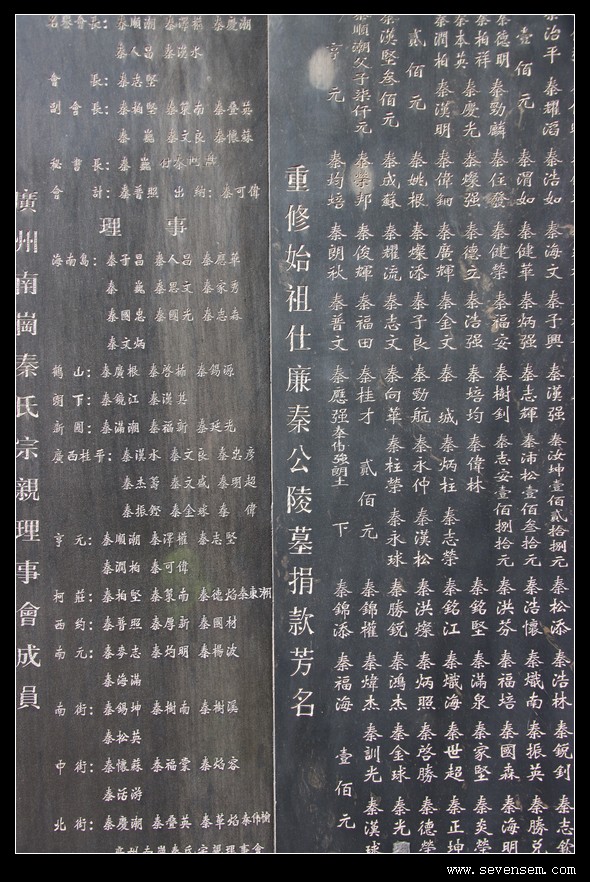 廣州南崗秦氏宗親理事會成員
名譽會長：秦順潮 秦澤權 秦慶潮
秦人昌 秦滿水
會 長：秦志堅
副會長：秦柏堅 秦策南 秦疊英
秦崑 秦文良 秦懷蘇
秘書長：秦崑
會 計：秦普照 出納：秦可偉
理 事
海南島：秦子昌 秦人昌 秦應華
秦崑 秦思文 秦家秀
秦國忠 秦國光 秦志森
秦文炳
鶴 山：秦廣根 秦啓拓 秦錫源
朗 下：秦鏡江 秦漢其
新 圍：秦滿潮 秦福新 秦廷光
廣西桂平：秦漢水 秦文良 秦忠彥
秦杰蕾 秦文威 秦明超
秦振鏗 秦金球 秦偉
亨 元：秦順潮 秦澤權 秦志堅
秦潤柏 秦可偉
柯 莊：秦柏堅 秦策南 秦德焰 秦東潮
西 約：秦普照 秦厚新 秦國材
南 元：秦麥志 秦均明 秦楊波
秦海滿
南 街：秦錫坤 秦樹南 秦樹溪
秦松英
中 街：秦懷蘇 秦福棠 秦焰容
秦活游
北 街：秦慶潮 秦疊英 秦華焰
重修始祖仕廉秦公陵墓捐款芳名
亨元 秦均培 秦朗秋 秦普文 秦應强 下 秦錦添 秦福海 壹佰元
秦順潮父子柒仟元 秦榮邦 秦俊輝 秦福田 秦桂才 貳佰元 秦錦權 秦煒杰 秦訓光 秦漢球
秦漢堅叁佰元 秦成蘇 秦耀流 秦志文 秦向華 秦柱榮 秦永球 秦勝銳 秦鴻杰 秦金球 秦光
貳佰元 秦姚根 秦燦添 秦子良 秦勁航 秦永仲 秦漢松 秦洪燦 秦炳照 秦啓勝 秦德榮
秦潤柏 秦漢明 秦偉鈿 秦廣輝 秦金文 秦城 秦炳柱 秦志榮 秦銘江 秦熾海 秦世超 秦正坤
秦本英 秦慶光 秦燦强 秦德立 秦浩强 秦培均 秦偉林 秦銘堅 秦滿泉 秦家堅 秦炎榮
秦柏祥 秦勁麟 秦任發 秦健榮 秦福安 秦樹釗 秦志安壹佰捌拾元 秦洪芬 秦福培 秦國森 秦海明
秦德明
壹佰元 秦渭如 秦健華 秦炳强 秦志輝 秦沛松壹佰叁拾元 秦浩懷 秦熾南 秦振英 秦勝兑
秦治平 秦耀滔 秦浩如 秦海文 秦子興 秦漢强 秦汝坤壹佰貳拾捌元 秦松添 秦浩林 秦銳釗 秦志欽
www.sevensem.com